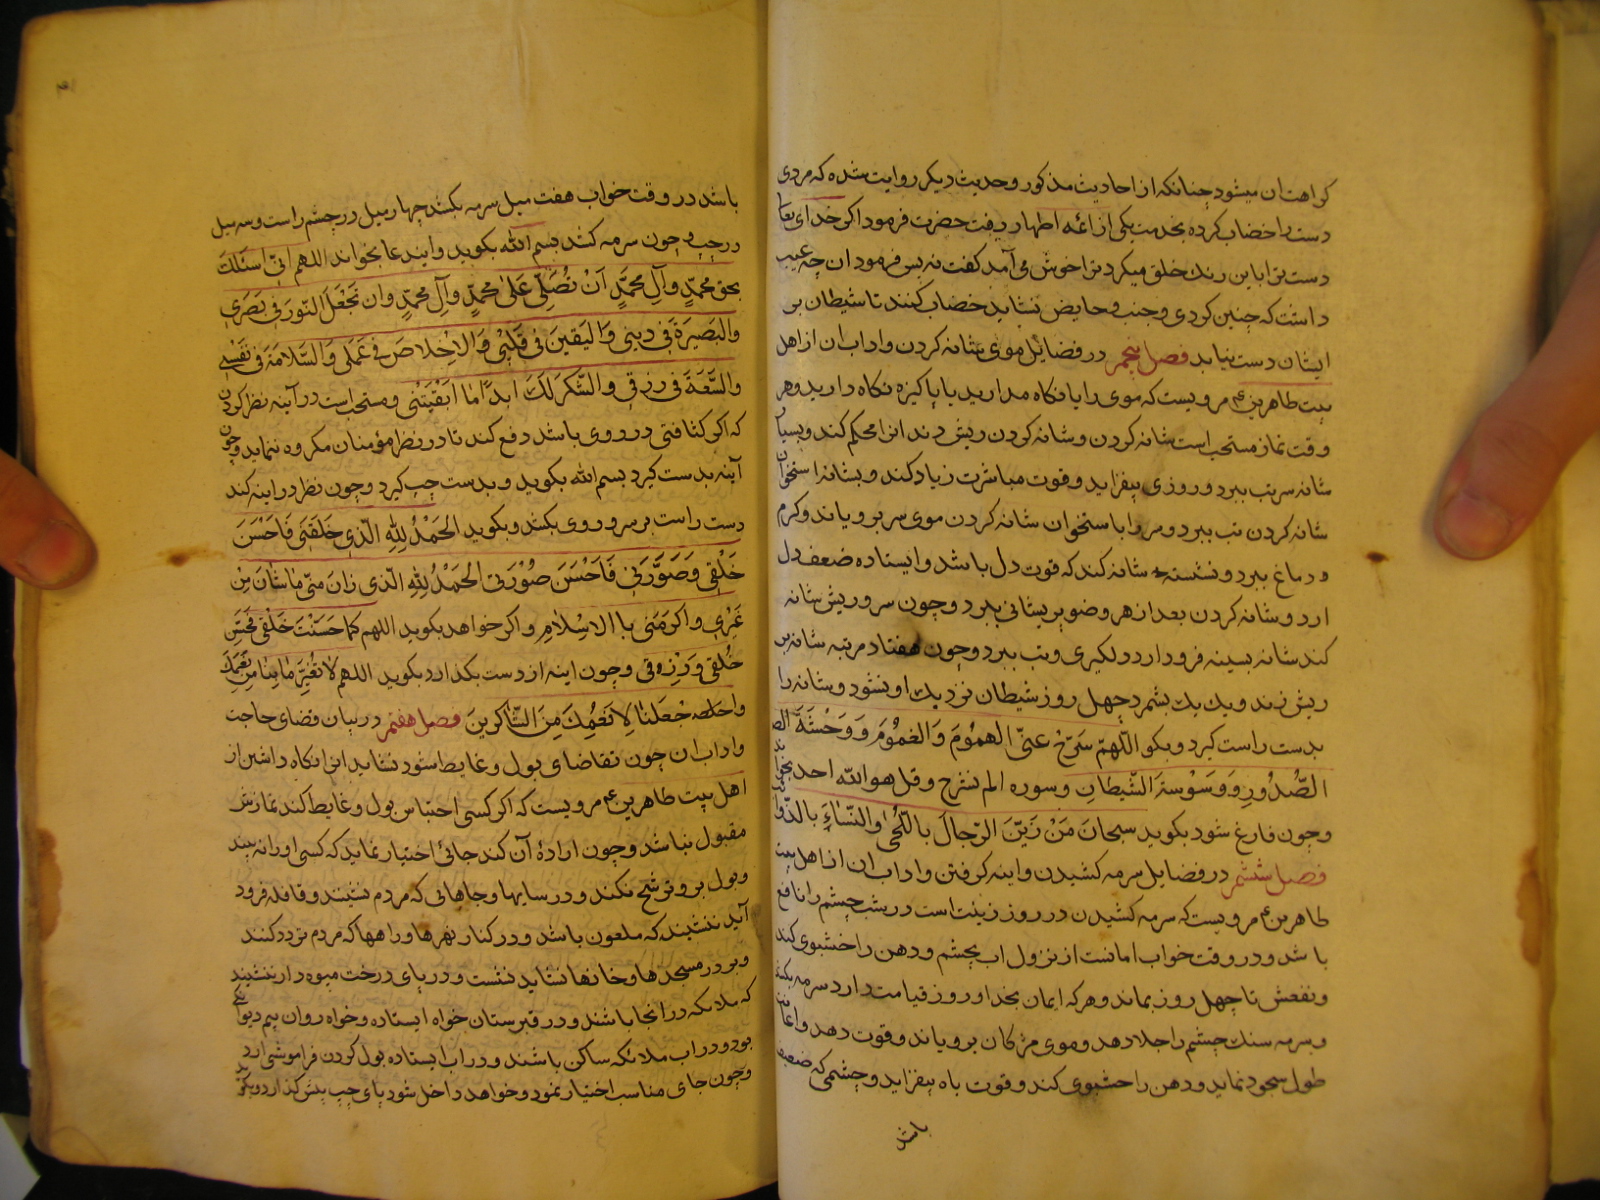 کراهت ان میشود چنانکه از احادیث مذکور و حدیث دیکر روایت شده که مردی
دست را خضاب کرده بخدمت یکی از ائمه اطهار رفت حضرت فرمود اکر خدای تعا
دست ترا باین رنک خلق میکرد ترا خوش می آمد کفت نه پس فرمود ان چه عیب
داشت که چنین کردی و جنب و حایض نشاید خضاب کنند تا شیطان بر
ایشان دست نیابد فصل پنجم در فضائل موی شانه کردن و اداب ان از اهل
بیت طاهرین ع م مرویست که موی را یا نکاه مدارید یا پاکیزه نکاه دارید و هر
وقت نماز مستحب است شانه کردن و شانه کردن ریش دندانرا محکم کند و بسیار
شانه سر تب ببرد و روزی بیفزاید و قوت مباشرت زیاد کند و بشانه استخوان
شانه کردن تب ببرد و سر را با ستخوان شانه کردن موی سر برویاند و کرم
دماغ ببرد و نشسته شانه کند که قوت دل باشد و ایستاده ضعف دل
ارد و شانه کردن بعد از هر وضو پریشانی ببرد و چون سر و ریش شانه
کند شانه بسینه فرود ارد دلکیری و تب ببرد و چون هفتاد مرتبه شانه بر
ریش زند و یک یک بشمرد چهل روز شیطان نزدیک او نشود و شانه را
بدست راست کیرد و بکو اللّهمّ سَرِّحْ عنّی الهمُومَ وَالغمُومَ وَوَحْشَةَ الص
الصُّدُورِ وَوَسْوسَةَ الشّیطانِ و سوره الم نشرح و قل هو الله احد بخواند
و چون فارغ شود بکوید سبحانَ مَنْ زَیَّنَ الرّجالَ باللُّحیٰ والنّساءَ بالذّوائ
فصل ششم در فضایل سرمه کشیدن و اینه کرفتن و اداب ان از اهل بیت
طاهرین ع م مرویست که سرمه کشیدن در روز زینت است در شب چشم را نافع
باشد و در وقت خواب امانست از نزول اب بچشم و دهن را خشبوی کند
و نفعش تا چهل روز بماند و هر که ایمان بخدا و روز قیامت دارد سرمه بکشد
و سرمه سنک چشم را جلا دهد و موی مژکان برویاند و قوت دهد و اعانت
طول سجود نماید و دهن را خشبوی کند و قوت باه بیفزاید و چشمی که ضعیف
باشد
باشد در وقت خواب هفت میل سرمه بکشد چهار میل در چشم راست و سه میل
در چپ و چون سرمه کشد بسم الله بکوید و ایندعا بخواند اللهم انّی اسئلک
بحق محمّدٍ وآلِ محمّدٍ اَنْ تُصَلّی عَلیٰ محمّدٍ وآلِ محمّدٍ وان تَجْعَلَ النّورَ فی بَصَری
والبَصیرَةَ فی دینی وَالیَقینَ فی قَلْبی وَالاِخْلاصَ فی عَمَلی وَالسَّلامَةَ فی نَفْسی
والسَّعَةَ فی رزقی والشّکرَ لَکَ ابَداً ما ابْقَیْتَنی و مستحب است در آینه نظر کردن
که اکر کثافتی در روی باشد دفع کند تا در نظر مؤمنان مکروه ننماید و چون
آینه بدست کیرد بسم الله بکوید و بدست چپ کیرد و چون نظر در اینه کند
دست راست بر سر و روی بکشد و بکوید الحَمْدُ لِلّٰهِ الّذی خَلَقَنی فَاَحْسَنَ
خَلْقی وَصَوَّرَنی فَاَحْسَنَ صُوْرَتی الحَمْدُ لِلّٰهِ الّذی زانَ منّی ماشانَ مِن
غَیْری و اکرمَنی بالاسْلامِ و اکر خواهد بکوید اللهم کما حَسَنْتَ خَلْقی فحَسِّن
خُلقی ورزقی و چون اینه از دست بکذارد بکوید اللهم لا تُغَیِّر مابِنا مِن نِعَمِکَ
واجعلنا لاَنْعُمِکَ مِنَ الشّاکرینَ فصل هفتم در بیان قضای حاجت
و اداب ان چون تقاضای بول و غایط شود نشاید انرا نکاه داشتن از
اهل بیت طاهرین ع م مرویست که اکر کسی احتباس بول و غایط کند نمازش
مقبول نباشد و چون ارادهٔ آن کند جائی اختیار نماید که کسی او را نه بیند
و بول بر و ترشح نکند و در سایها و جاهائی که مردم نشینند و قافله فرود
آید ننشیند که ملعون باشد و در کنار نهرها و راهها که مردم تردد کنند
و بر در مسجدها و خانها نشاید نشست و در پای درخت میوه دار ننشیند
که ملائکه در انجا باشند و در قبرستان خواه ایستاده و خواه روان بیم دیوانکی
بود و در اب ملائکه ساکن باشند و در اب ایستاده بول کردن فراموشی ارد
و چون جای مناسب اختیار نمود و خواهد داخل شود پای چپ پیش کذارد و بکوید